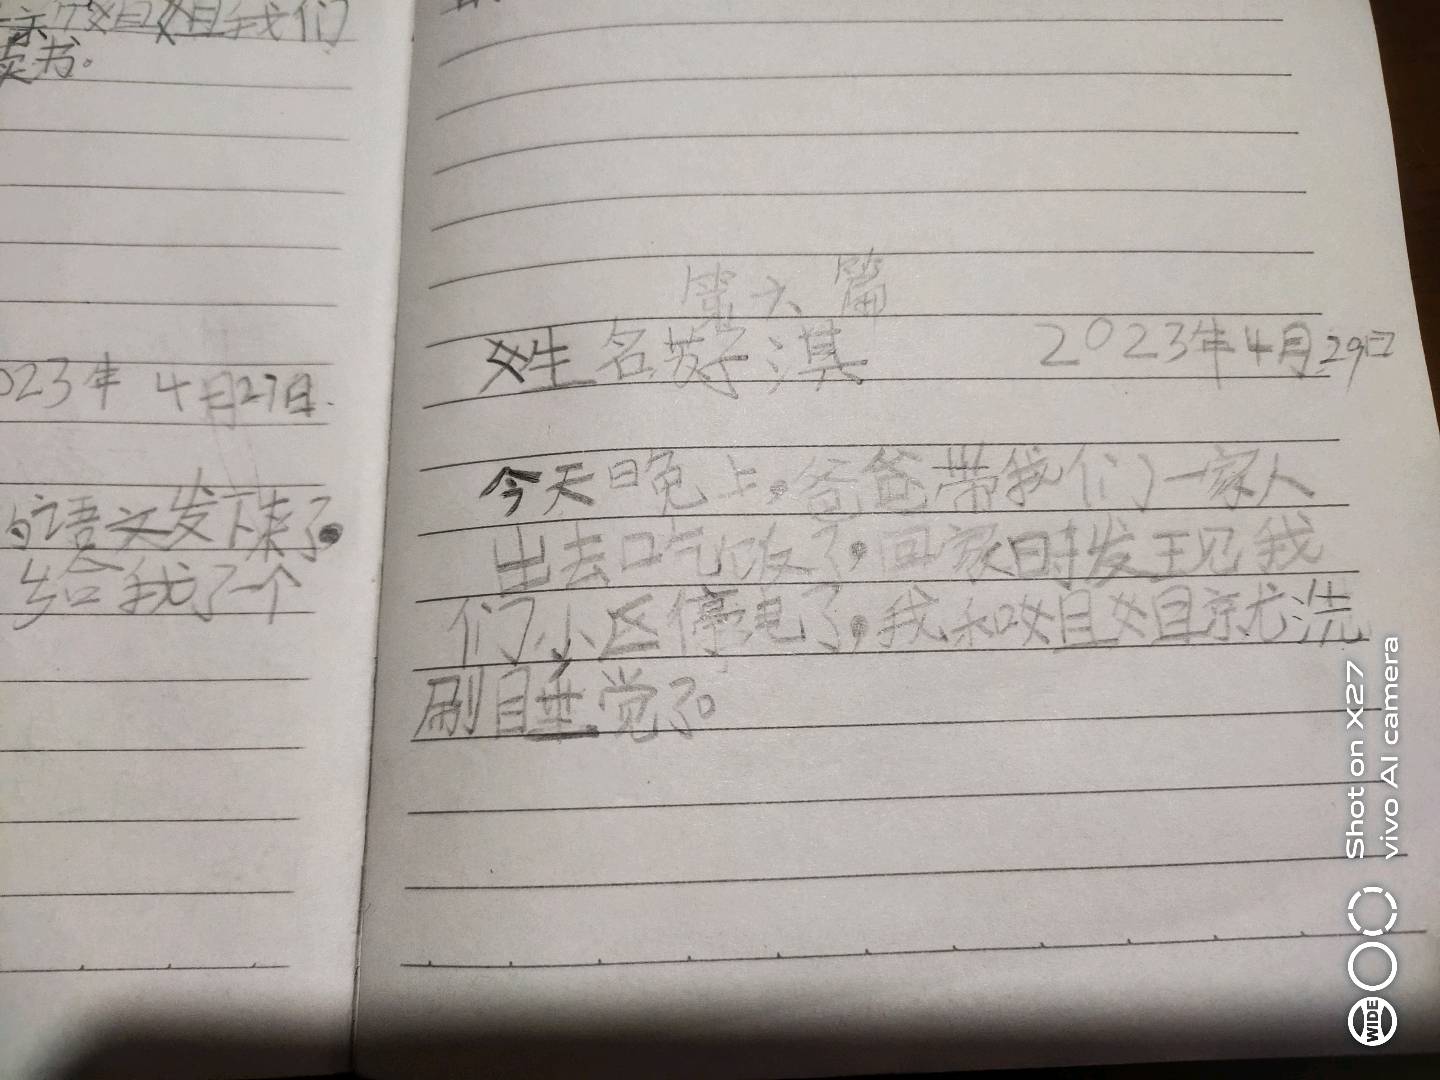 姐姐我们
读书。
2023年 4月27日.
的语文发下来了。
给我了一个
第六篇
姓名英子淇 2023年4月29日
今天晚上,爸爸带我们一家人
出去吃饭了,回家时发现我
们小区停电了,我和姐姐就洗
刷睡觉了。
Shot on X27
vivo AI camera
WIDE